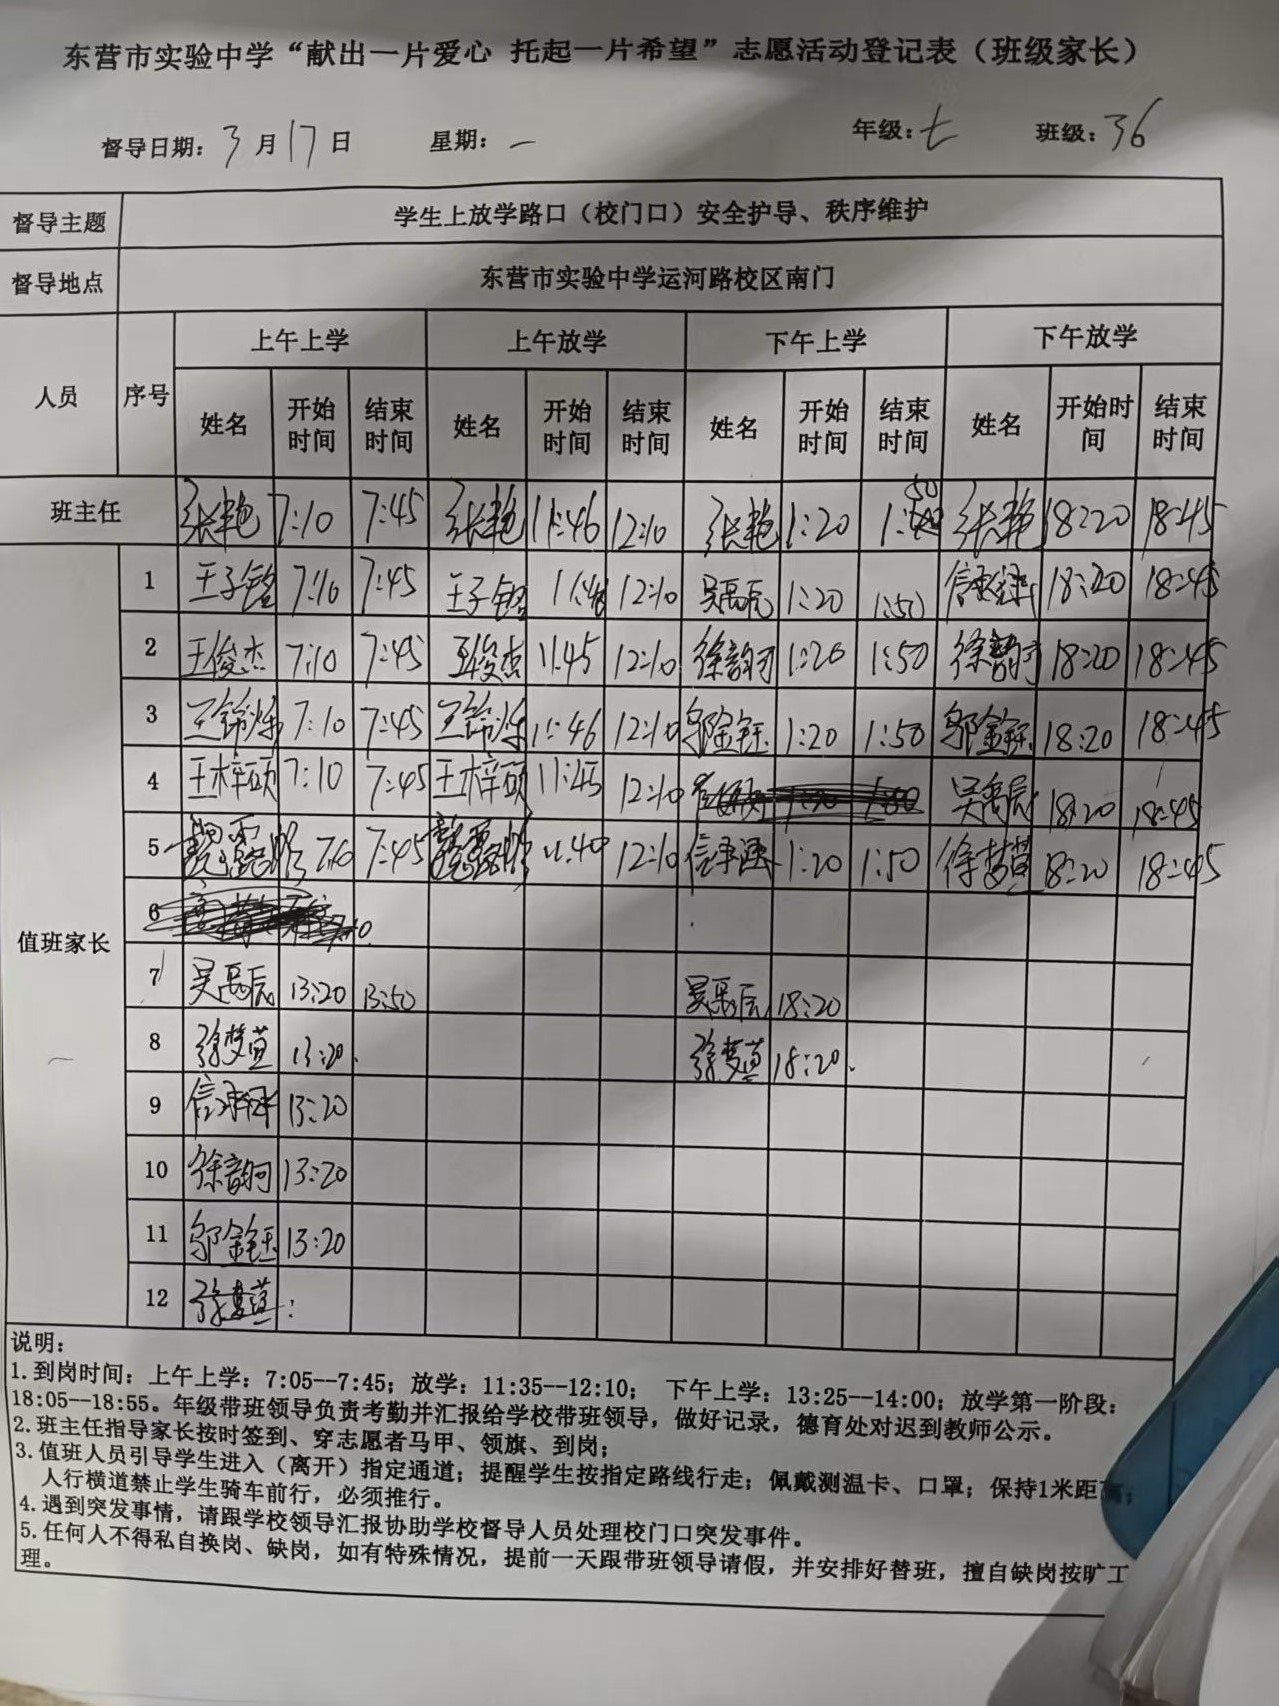 东营市实验中学“献出一片爱心 托起一片希望”志愿活动登记表（班级家长）
督导日期：3月17日 星期：一 年级：七 班级：36
督导主题 学生上放学路口（校门口）安全护导、秩序维护
督导地点 东营市实验中学运河路校区南门
人员 序号 上午上学 上午放学 下午上学 下午放学
姓名 开始时间 结束时间 姓名 开始时间 结束时间 姓名 开始时间 结束时间 姓名 开始时间 结束时间
班主任 张艳 7:10 7:45 张艳 11:46 12:10 张艳 1:20 1:50 张艳 18:20 18:45
值班家长
1 王子铭 7:10 7:45 王子铭 12:10 吴禹辰 1:20 1:50 18:20 18:45
2 王俊杰 7:10 7:45 王俊杰 11:45 12:10 徐韵珂 1:20 1:50 徐韵珂 18:20 18:45
3 7:10 7:45 11:46 12:10 邬金钰 1:20 1:50 邬金钰 18:20 18:45
4 王梓硕 7:10 7:45 王梓硕 11:45 12:10 吴禹辰 18:20 18:45
5 7:10 7:45 11:40 12:10 1:20 1:50 徐梦萱 18:20 18:45
6
7 吴禹辰 13:20 13:50 吴禹辰 18:20
8 徐梦萱 13:20. 徐梦萱 18:20.
9 13:20
10 徐韵珂 13:20
11 邬金钰 13:20
12 徐梦萱
说明：
1.到岗时间：上午上学：7:05--7:45；放学：11:35--12:10； 下午上学：13:25--14:00；放学第一阶段：
18:05--18:55。年级带班领导负责考勤并汇报给学校带班领导，做好记录，德育处对迟到教师公示。
2.班主任指导家长按时签到、穿志愿者马甲、领旗、到岗；
3.值班人员引导学生进入（离开）指定通道；提醒学生按指定路线行走；佩戴测温卡、口罩；保持1米距离；
人行横道禁止学生骑车前行，必须推行。
4.遇到突发事情，请跟学校领导汇报协助学校督导人员处理校门口突发事件。
5.任何人不得私自换岗、缺岗，如有特殊情况，提前一天跟带班领导请假，并安排好替班，擅自缺岗按旷工
理。